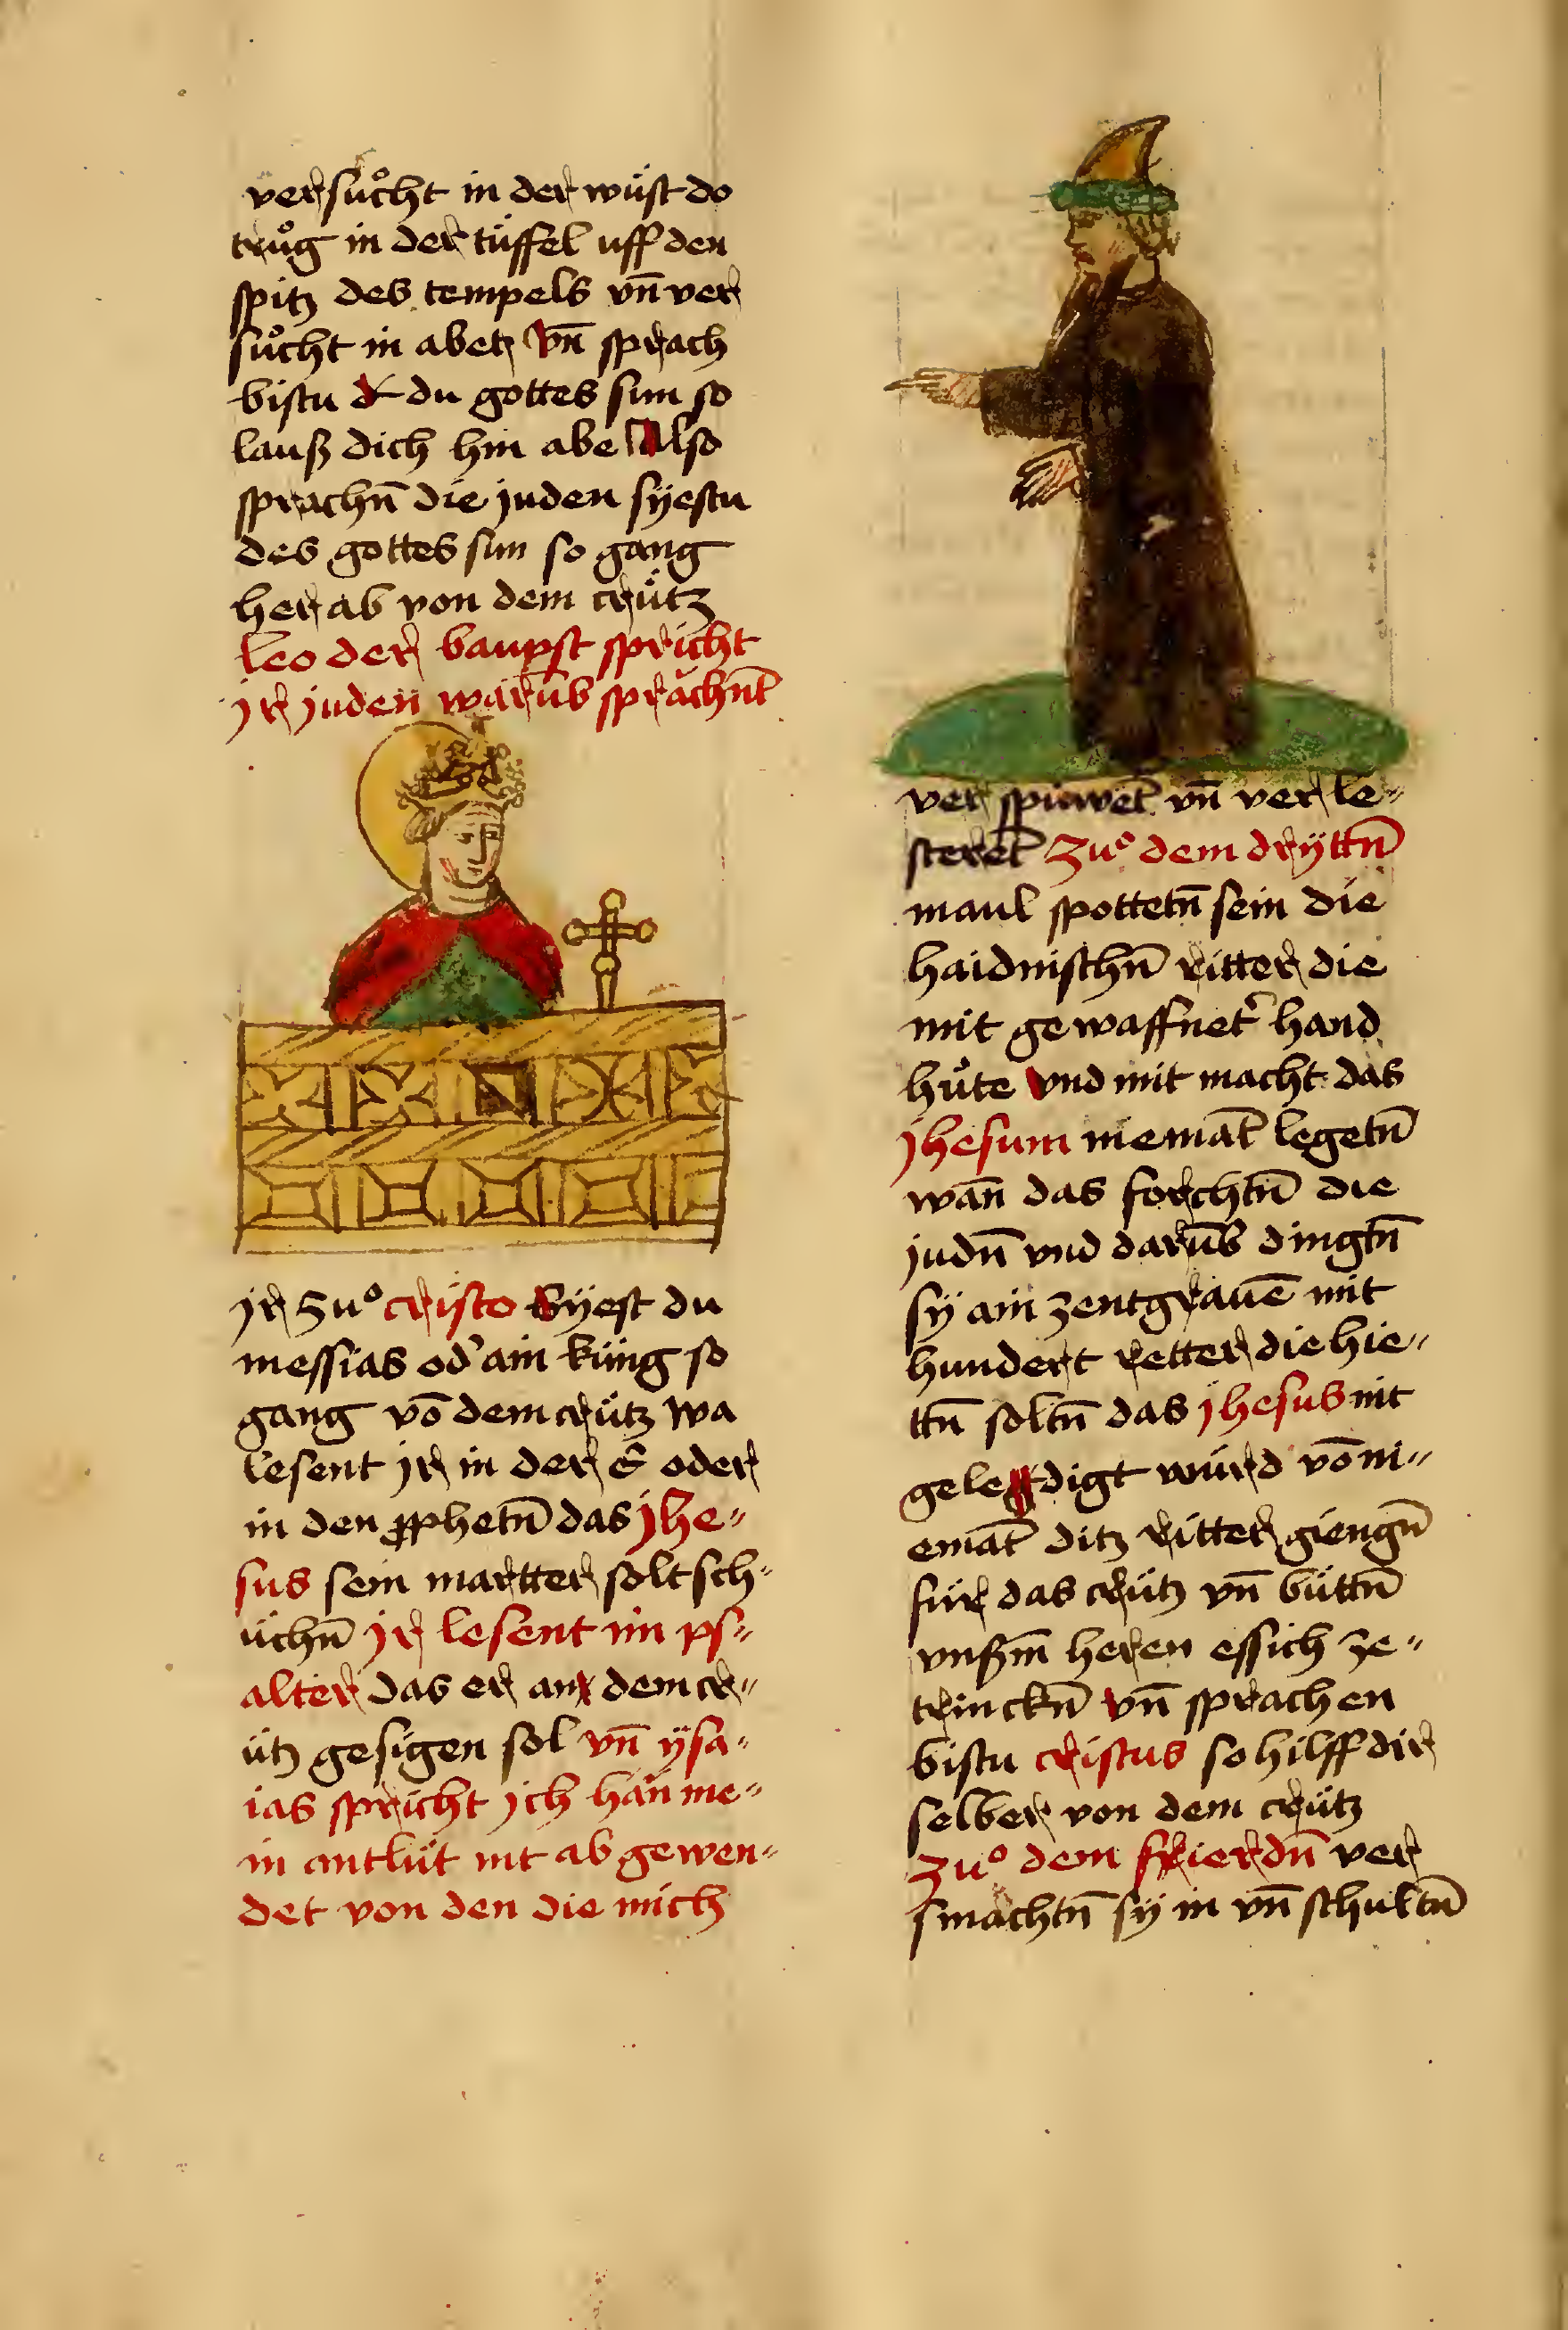 versůcht in der wüst do
trůg in der tüffel uff den
spitz des tempels vn̄ ver
sůcht in abetz vn̄ sprach
bistu d du gottes sun so
lauß dich hin abe Also
sprachn̄ die juden syestu
des gottes sun so gang
her ab von dem crütz
leo der baupst spricht
jr juden warūb sprächnt̄
jr zuͦ cristo Syest du
messias od' ain küng so
gang vō dem crütz wa
lesent jr in der E oder
in den ꝓphetn̄ das jhe〃
sus sein martter solt sch〃
üchn̄ jr lesent im ps〃
alter das er an dem cr〃
ütz gesigen sol vn̄ ysa〃
ias spricht jch han me〃
in antlüt nit ab gewen〃
det von den die mich
ver spiuwet̄ vn̄ ver le〃
steret̄ Zuͦ dem dryttn̄
maul spottetn̄ sein die
haidnischn̄ ritter die
mit gewaffnet' hand
hůte vnd mit macht das
jhesum niemāt legetn̄
wan̄ das forchtn̄ die
judn̄ vnd darūb dingtn̄
sy ain zentgrauē mit
hundert retter die hie〃
ttn̄ soltn̄ das jhesus nit
geledigt würd vō ni〃
emāt ditz ritter giengn̄
für das crütz vn̄ büttn̄
vnßm̄ heren essich ze〃
trinckn̄ vn̄ sprachen
bistu cristus so hilff dir
selber von dem crütz
Zuͦ dem fierdn̄ ver
smachtn̄ sy in vn̄ schultn̄